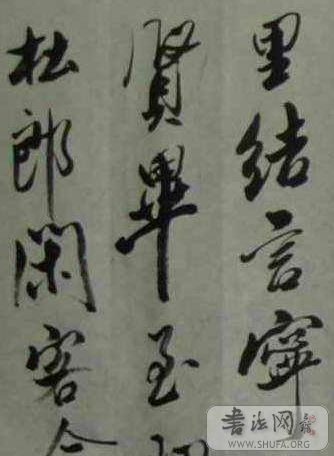 里結言寧
賢畢至
杜郎閑客
书法网
WWW.SHUFA.ORG